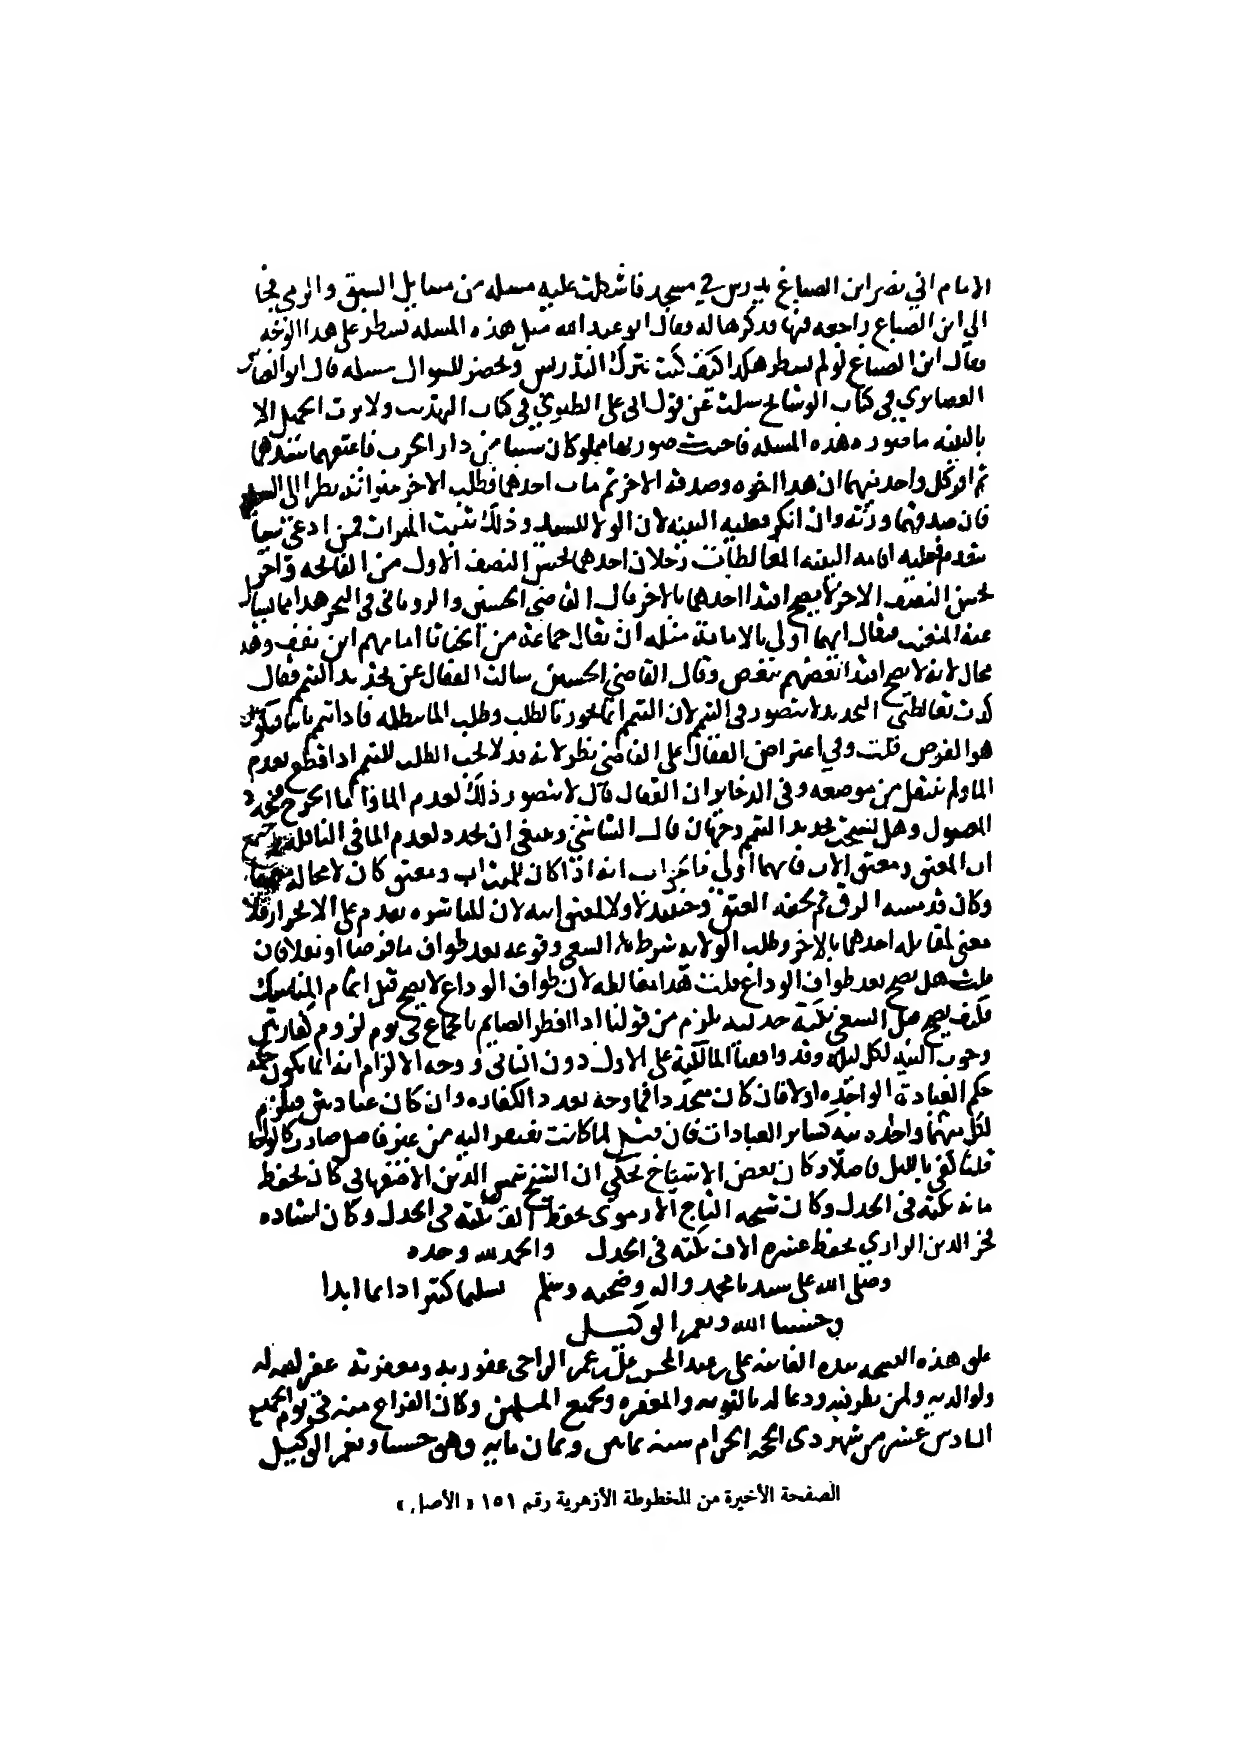 الامام ابي نصر ابن الصباغ يدرس في مسجد فاشكلت عليه مسله من مسايل السبق والرمي فجا
الي ابن الصباغ راجعه فيها فذكرها له فقال ابو عبد الله مثل هذه المسله تسطر على هذا الوجه
فقال ابن الصباغ لو لم تسطر هكذا كيف كنت تترك التدريس وتحضر للسوال مسله قال ابو
في كتاب الوشايح سئلت عن قول ابي على الطبري في كتاب ولا يرث الحميل الا
بالبينه ما صوره هذه المسله فاجبت صورتها مملوكان سبيا من دار الحرب فاعتقهما سيدهما
ثم اقر كل واحد منهما ان هذا اخوه وصدقه الاخر ثم مات احدهما فطلب الاخر ميراثه نظر الى
فان صدقهما ورثه وان انكر فعليه البينه لان الولا للسيد وذلك يثبت الميراث فمن ادعى نسبا
يتقدم فعليه اقامه البينه المغالطات رجلان احدهما يحسن النصف الاول من الفاتحه واخر
يحسن النصف الاخر لا يصح اقتدا احدهما بالاخر قال القاضي الحسين والروياني في البحر هذا مما يسال
عنه فيقال ايهما اولى بالامامة مثله ان يقال جماعة من الخناثا امامهم ابن نصف وهو
محال لانه لا يصح اقتدا بعضهم ببعض وقال القاضي الحسين سالت القفال عن تجديد التيمم فقال
التجديد لا يتصور في التيمم لان التيمم انما يجوز بالطلب وطلب الما يبطله فاذا تيمم ثانيا فيكون
هو الفرض قلت وفي اعتراض القفال على القاضي نظر لانه قد لا يجب الطلب للتيمم اذا قطع بعدم
الما ولم ينتقل من موضعه وفي الذخاير ان القفال قال لا يتصور ذلك لعدم الما اذا
وهل يستحب تجديد التيمم وجهان قال الشاشي وينبغي ان يجدد لعدم الما في النافله
ابن المعتق ومعتق الاب فايهما اولى فاجاب انه اذا كان للميت اب ومعتق كان لا محالة
وكان قد مسه الرق ثم لحقه العتق وحينئذ لا ولا لمعتق ابيه لان للمباشره تقدم على الانجرار فلا
معنى لمقابله احدهما بالاخر وطلب الولايه شرط السعي وقوعه بعد طواف ما فرضا او نفلا فان
قلت هل يصح بعد طواف الوداع قلت هذا مغالطه لان طواف الوداع لا يصح قبل اتمام المناسك
فكيف يصح قبل السعي نكتة جدليه يلزم من قولنا اذا افطر الصايم بالجماع في يوم لزوم كفارتين
وجوب النيه لكل ليله وقد وافقنا المالكية على الاول دون الثاني ووجه الالزام انه انما يكون حكمه
حكم العبادة الواحده او لا فان كان متحدا فما وجه تعدد الكفاره وان كان عبادتين فيلزم
لكل منهما واحده نيه كساير العبادات فان قيل لما كانت من غير فاصل صارت كالواحد
قلنا كفى بالليل فاصلا وكان بعض الاشياخ يحكي ان الشيخ شمس الدين الاصفهاني كان يحفظ
مايه نكته في الجدل وكان شيخه التاج الارموى يحفظ الف نكته في الجدل وكان استاده
فخر الدين الرازي يحفظ عشره الاف نكته في الجدل والحمد لله وحده
وصلى الله على سيدنا محمد واله وصحبه وسلم تسليما كثيرا دايما ابدا
وحسبنا الله ونعم الوكيل
علق هذه النسخه بيده الفانيه على بن عبد المحسن بن على بن عمر الراجي عفو ربه ومغفرته غفر الله له
ولوالديه ولمن نظر فيه ودعا له بالتوبه والمغفره ولجميع المسلمين وكان الفراغ منه في يوم
السادس عشر من شهر ذى الحجه الحرام سنه ثمانين وثمان مايه وهو حسبنا ونعم الوكيل
الصفحة الأخيرة من للخطوطة الأزهرية رقم ١٥١ «الأصل»